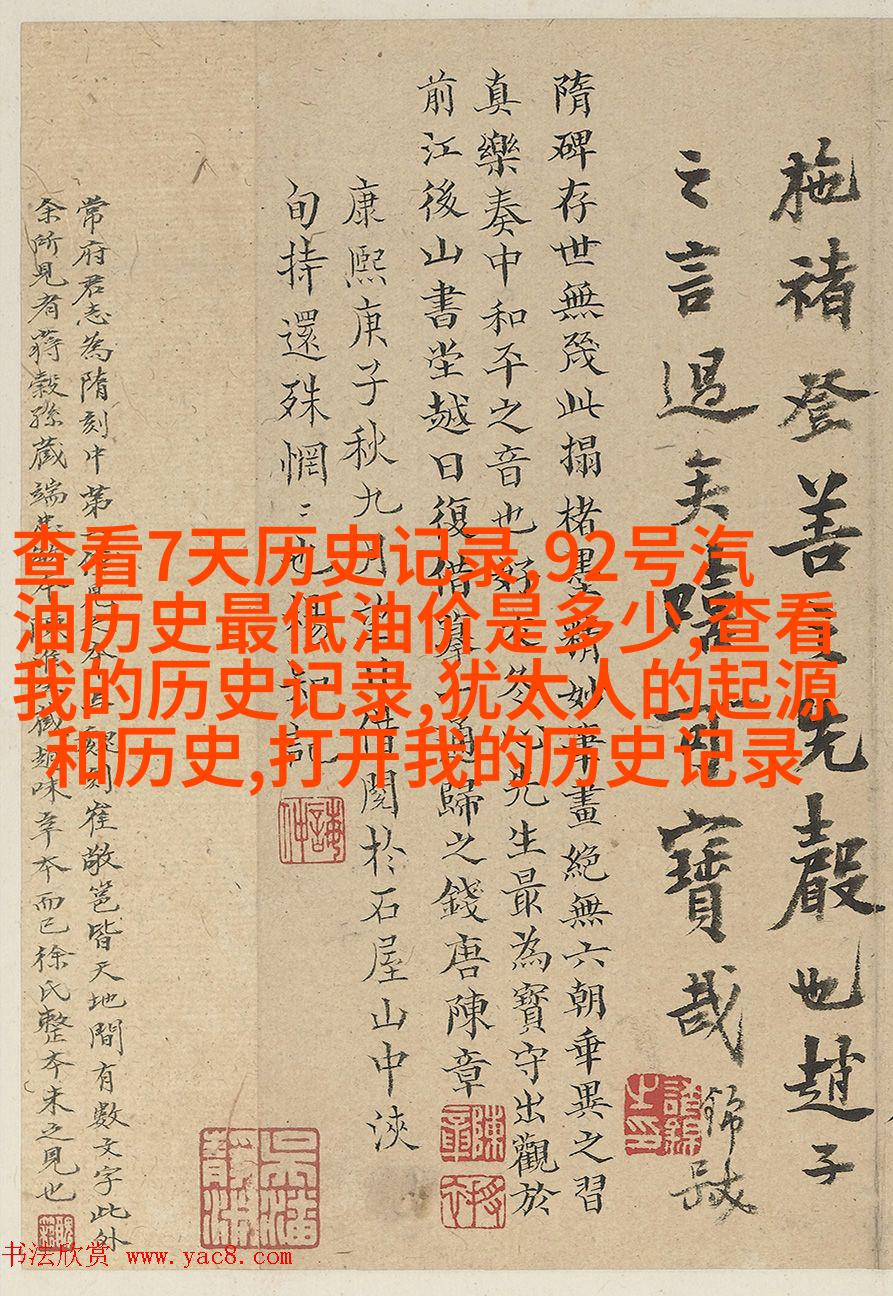 施褚登善之先聲也趙子
之言過矣噫可寶哉 錦
隋碑存世無幾此搨楮墨
妙畫絕無六朝垂異之習
真樂奏中和平之音也
先生最為寶守出觀於
前江後山書堂越日復借摹一通歸之錢唐陳章
康熙庚子秋九月
借閱於石屋山中浹
旬持還殊惘〻也
常府君志為隋刻中第一
崔敬邕皆天地間有數文字此外
余所見有蔣穀孫藏端
味辛本而已徐氏整本未之見也
查看7天历史记录,92号汽
油历史最低油价是多少,查看
我的历史记录,犹太人的起源
和历史,打开我的历史记录
陳章
书法欣赏 www.yac8.com